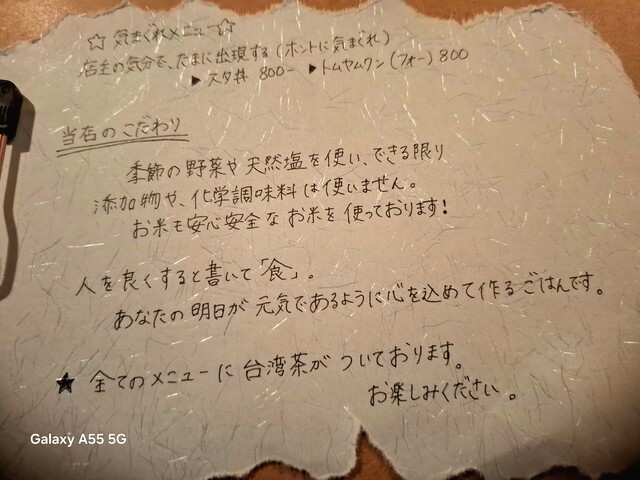 ☆ 気まぐれメニュー☆
店主の気分で、たまに出現する(ホントに気まぐれ)
▶スタ丼 800- ▶トムヤムクン(フォー) 800
当店のこだわり
季節の野菜や天然塩を使い、できる限り
添加物や、化学調味料は使いません。
お米も安心安全なお米を使っております!
人を良くすると書いて「食」。
あなたの明日が元気であるように心を込めて作るごはんです。
★ 全てのメニューに台湾茶がついております。
お楽しみください。
Galaxy A55 5G